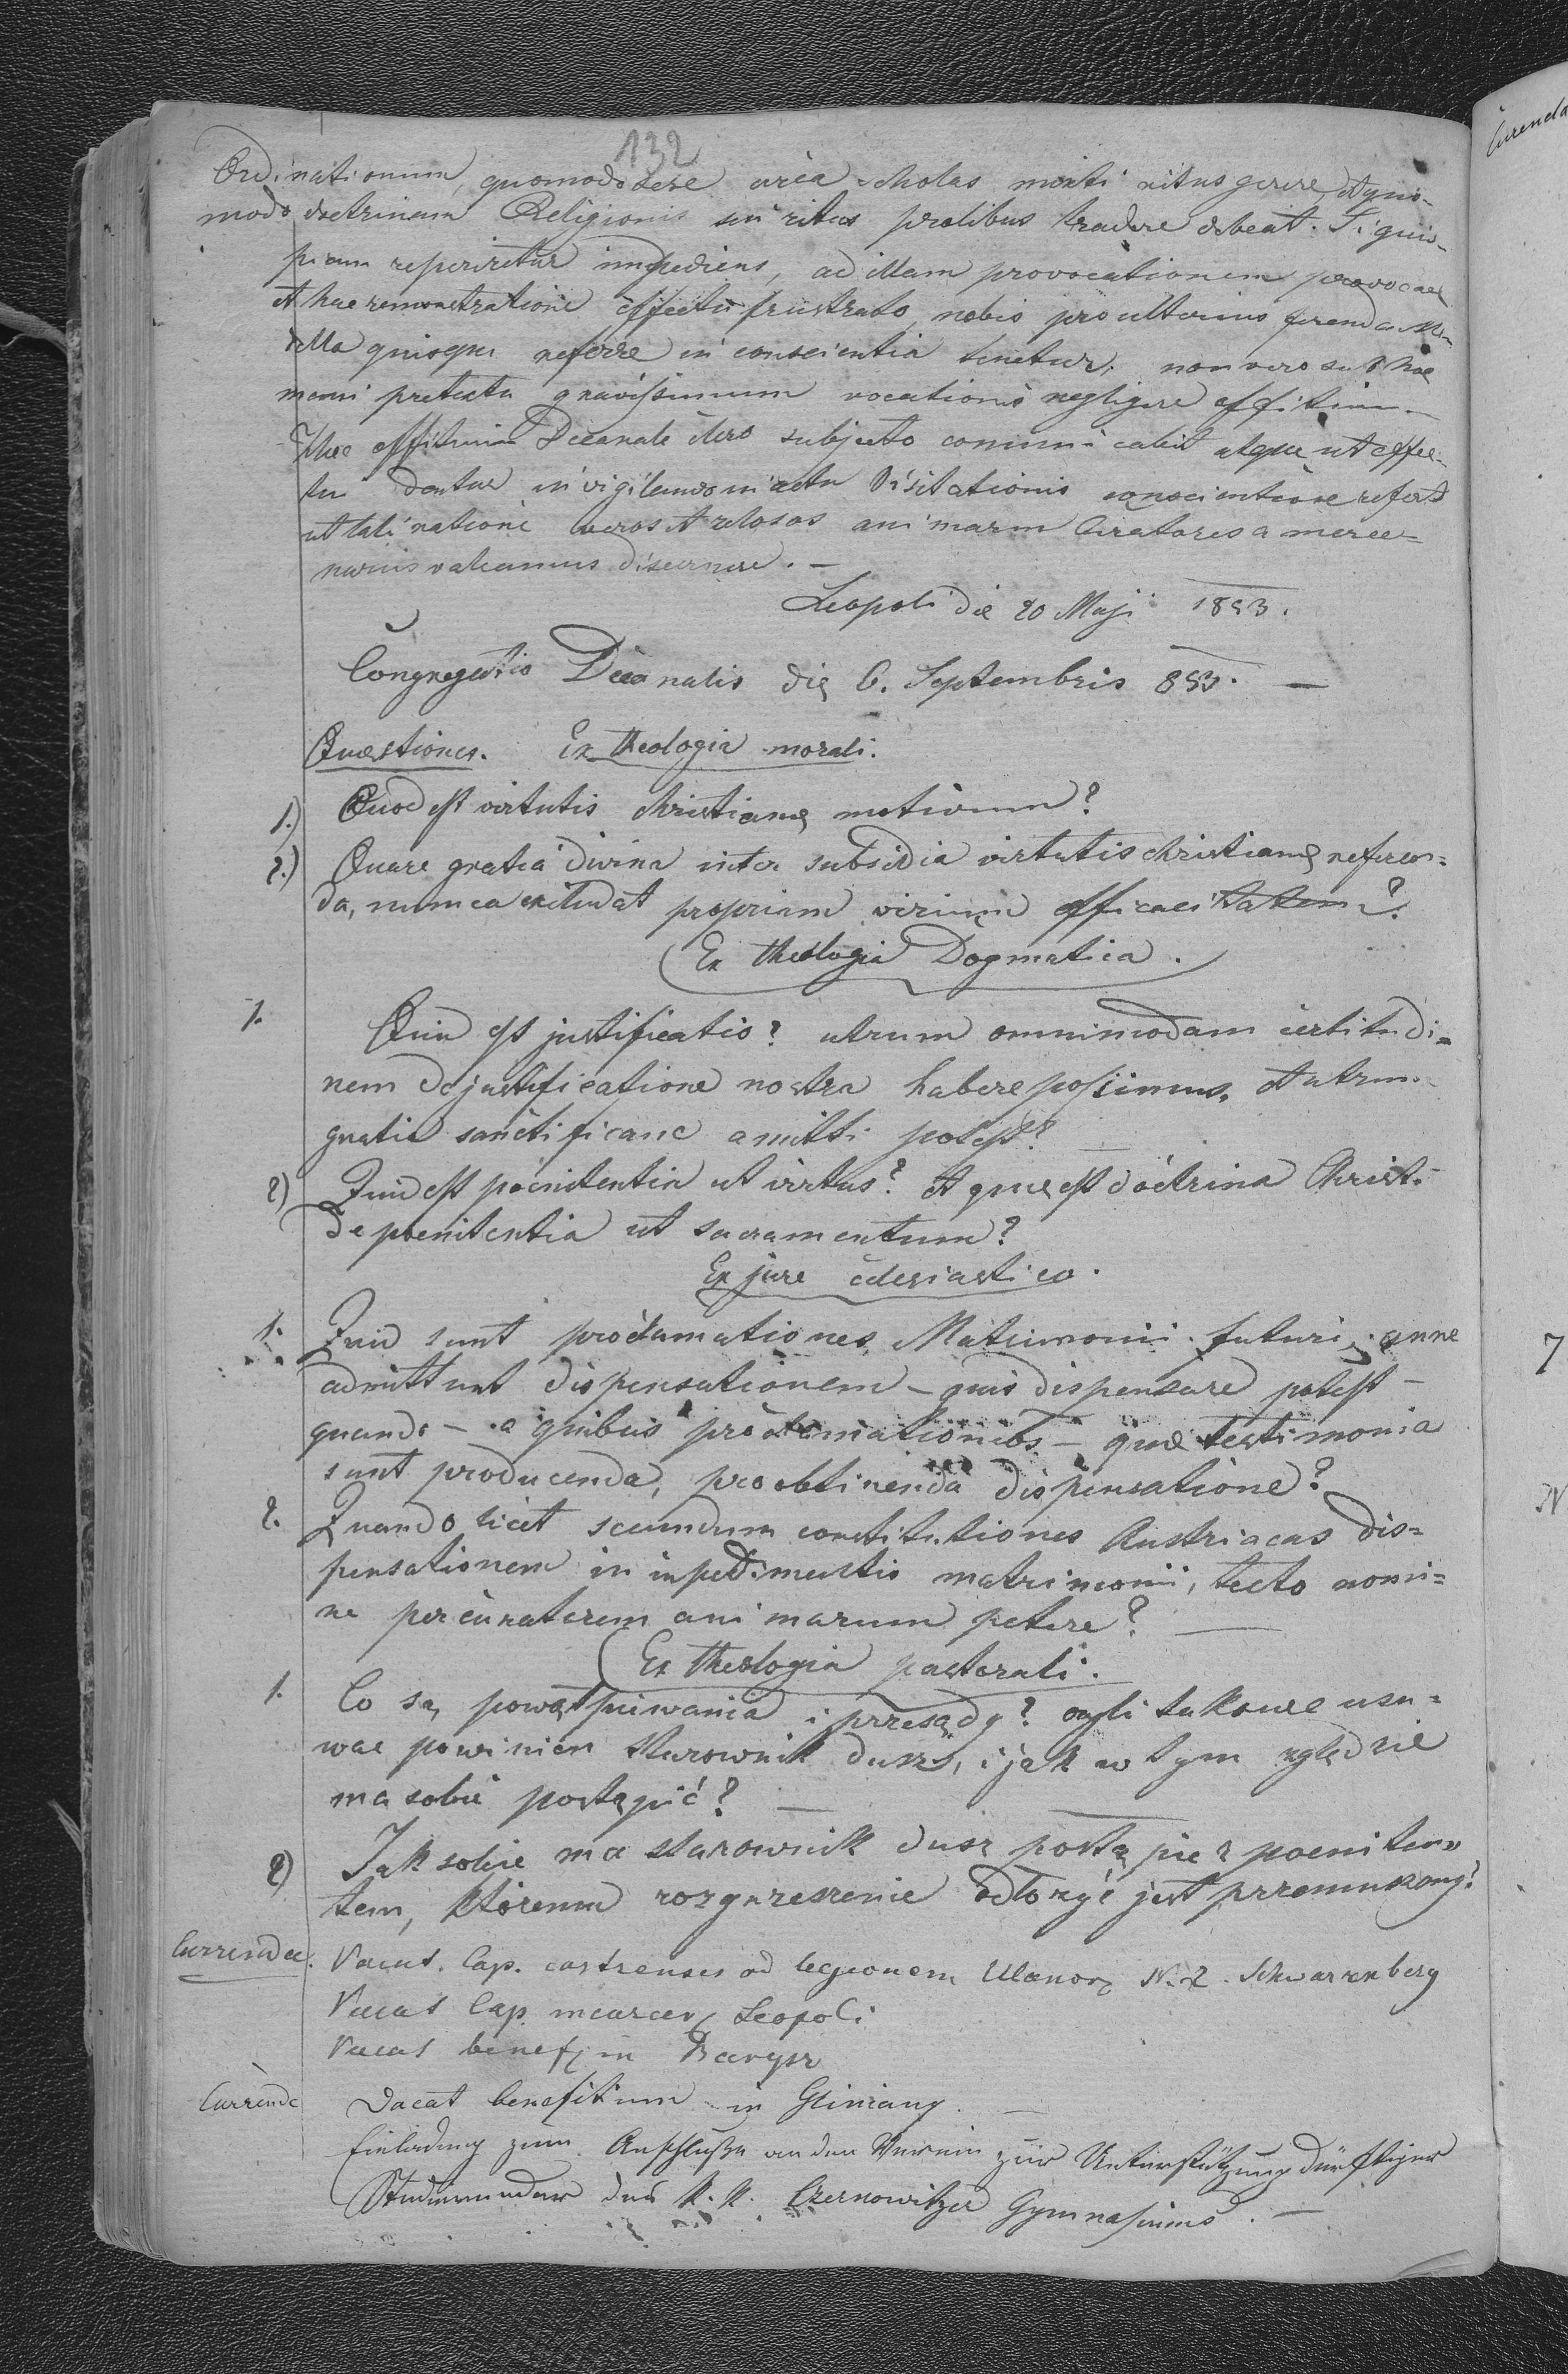 132
Ordinationum, quomodo sese circa scholas mixti ritus gerere, et quo-
modo doctrinam Religionis sui ritus prolibus tradere debeat. Si quis-
piam reperiretur impediens, ad illam provocationem provocare
et hac remonstratione effectu frustrato, nobis pro ulterius ferenda
quisque referre in conscientia tenetur, non vero sub hoc
pretextu gravissimum vocationis negligere offitium.
Hoc offitium Decanale Clero subjecto communicabit atque ut effec-
tu dentur invigilando in actu Visitationis conscientiose refert
ut tali ratione veros et zelosos animarum Curatores a merce-
nariis valeamus discernere. —
Leopoli die 20 Maji 1853.
Congregatio Decanalis die 6. Septembris 853. —
Quæstiones. Ex theologia morali.
1.) Quod est virtutis christianę motivum?
2.) Quare gratia divina inter subsidia virtutis christianę referen=
da, num ea excludat propriam virium efficacitatem?
Ex theologia Dogmatica.
1. Quid est justificatio? utrum omnimodam certitudi=
nem de justificatione nostra habere possimus, et utrum
gratia sanctificans amitti potest? —
2) Quid est poenitentia ut virtus? et quæ est doctrina Christ.
de poenitentia ut sacramentum?
Ex jure eclesiastico.
1. Quid sunt proclamationes Matrimonii futuri, anne
admittunt dispensationem – quis dispensare potest –
quando – a quibus proclamationibs – quæ testimonia
sunt producenda, pro obtinenda dispensatione?
2. Quando licet secundum constitutiones Austriacas dis=
pensationem in inpedimentis matrimonii, tecto nomi=
ne per curatorem animarum petere? —
Ex theologia pastorali.
1. Co są powątpiwania i przesądy? czyli takowe usu=
wac powinien sterownik dusz, i jak w tym względzie
ma sobie postąpić? —
2) Jak sobie ma starownik dusz postąpic z poeniten=
tem, któremu rozgrzeszenie odłożyć jest przemuszony?
Currendæ. Vacat. Cap. castrenses ad legionem Ulanorą N. 2. Schwarzenberg
Vacat Cap. incarcerą Leopoli
Vacat benef. in Barysz
Currende Vacat benefitium in Gliniany. —
Einladung zum Anschluße an den Verein zur Unterstützung dürftiger
Studierender des k. k. Czernowitzer Gymnasiums. —
Curenda
7
N